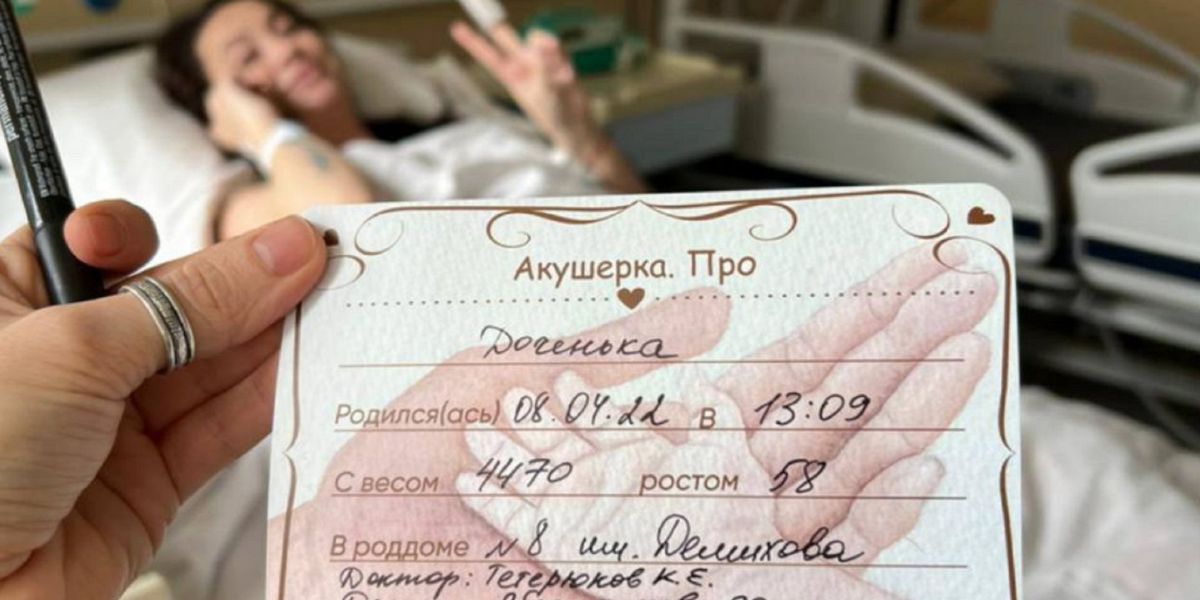 Акушерка. Про
Доченька
Родился(ась) 08.04.22 в 13:09
С весом 4470 ростом 58
В роддоме №8 им. Демихова
Доктор: Тетерюков К.Е.